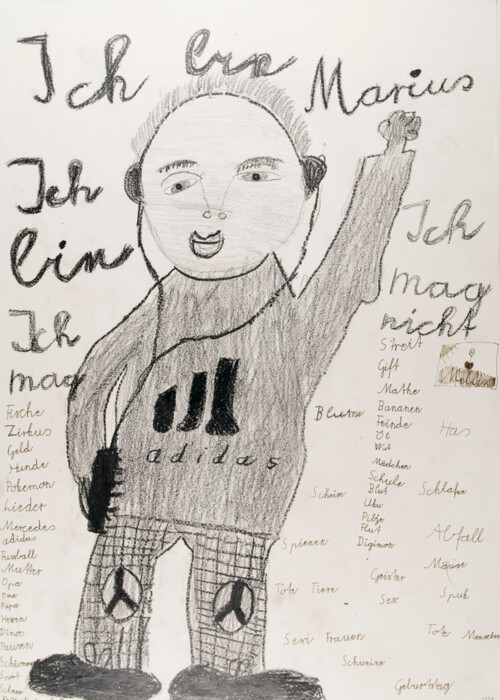 Ich bin Marius
Ich
bin
Ich
mag
Fische
Zirkus
Geld
Hunde
Pokemon
Lieder
Mercedes
adidas
Fussball
Mutter
Opa
Oma
Papa
Hexen
Dino
Sport
adidas
Ich
mag
nicht
Streit
Gift
Mathe
Bananen
Feinde
Öl
Wut
Mädchen
Schule
Blut
Uhu
Pilze
Flut
Digimon
Blume
Spinnen
Tote Tiere
Geister
Sex
Sexi Frauen
Schweine
Geburtstag
Has
Schlafen
Abfall
Mäuse
Spuk
Tote Menschen